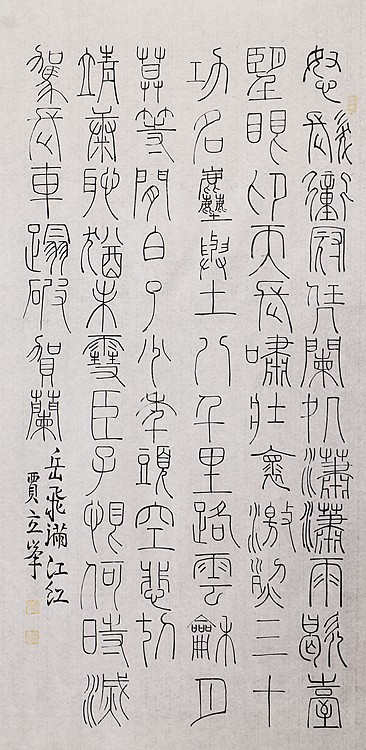 怒髮衝冠凭闌処瀟瀟雨歇臺
望眼仰天長嘯壯懷激烈三十
功名塵與土八千里路雲龢月
莫等閒白了少年頭空悲切
靖康恥猶未雪臣子恨何時滅
駕長車蹋破賀蘭
岳飛滿江紅
賈立